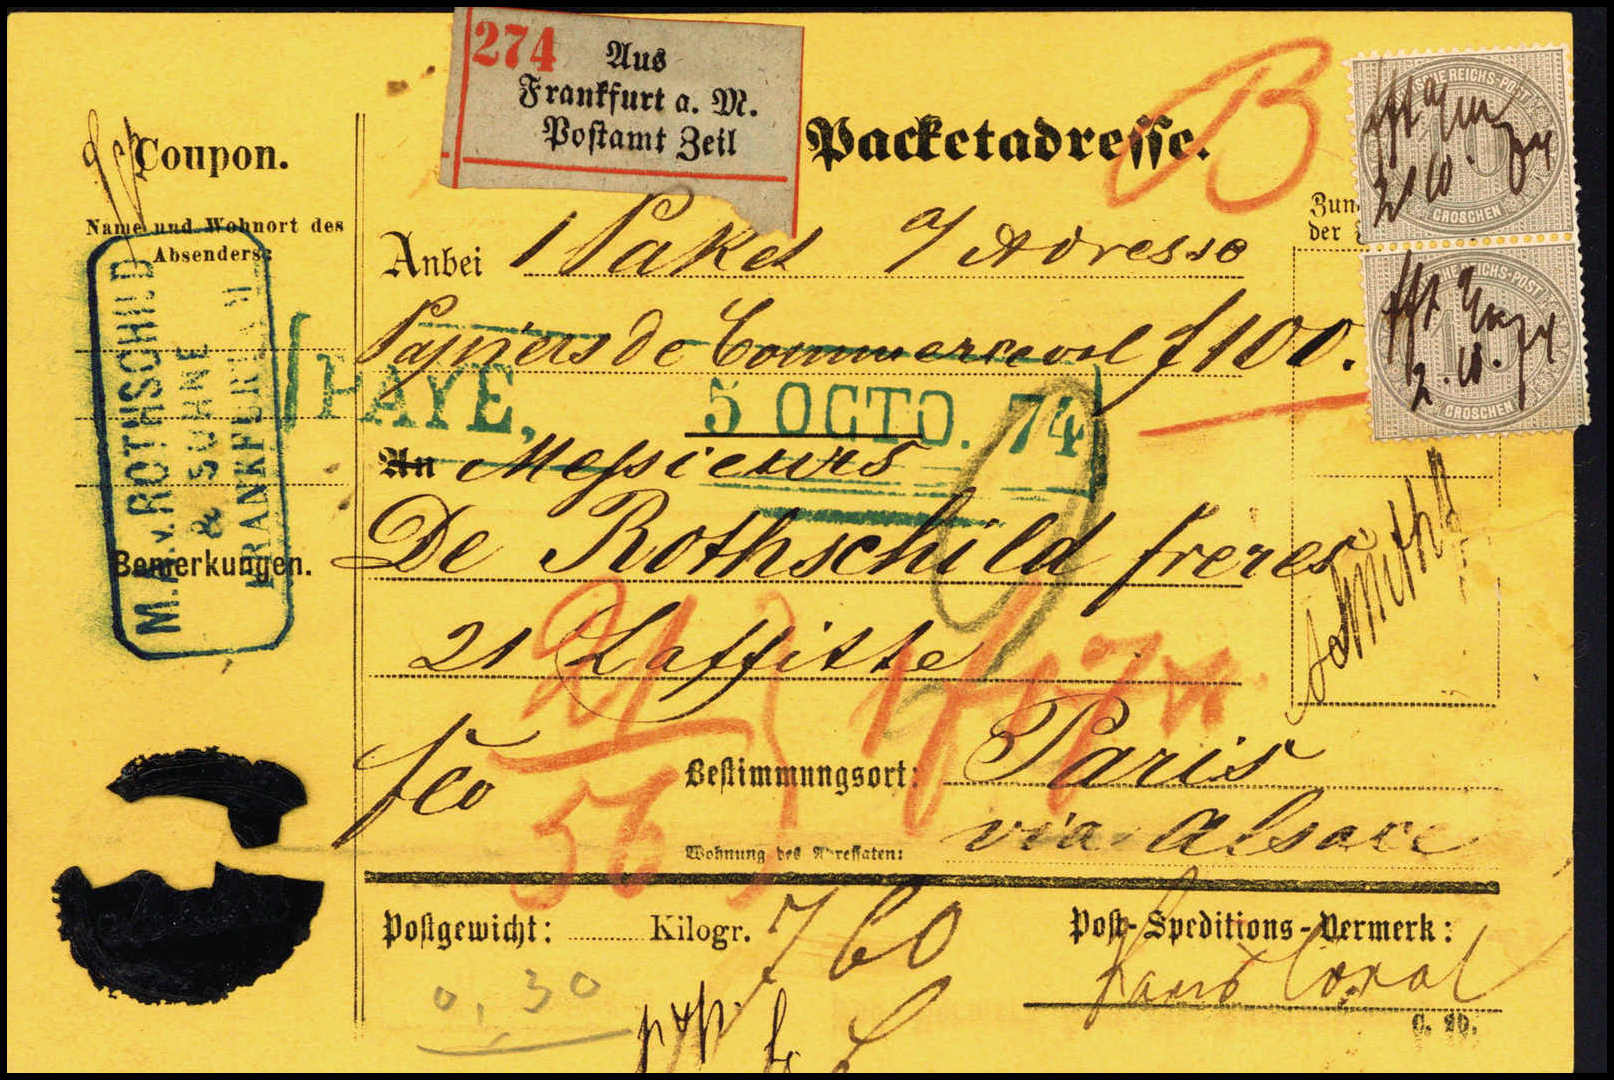 274
Aus
Frankfurt a. M.
Postamt Zeil
Packetadresse.
B
Coupon.
Name und Wohnort des
Absenders:
M. A. v. ROTHSCHILD
& SÖHNE
FRANKFURT A/M
Bemerkungen.
Anbei 1 Paket a/ Adresse
Papiers de Commerce vol f 100.
PAYE, 5 OCTO. 74
An Messieurs
De Rothschild freres
21 Laffitte
fco
21
56
Bestimmungsort: Paris
via Alsace
Wohnung des Adressaten:
Postgewicht: Kilogr. 760
0,30
Post-Speditions-Vermerk:
C. 20.
Zun
der
SCHE REICHS-POST
10
GROSCHEN
2 10. 74
HE REICHS-POST
10
GROSCHEN
2. 10. 74